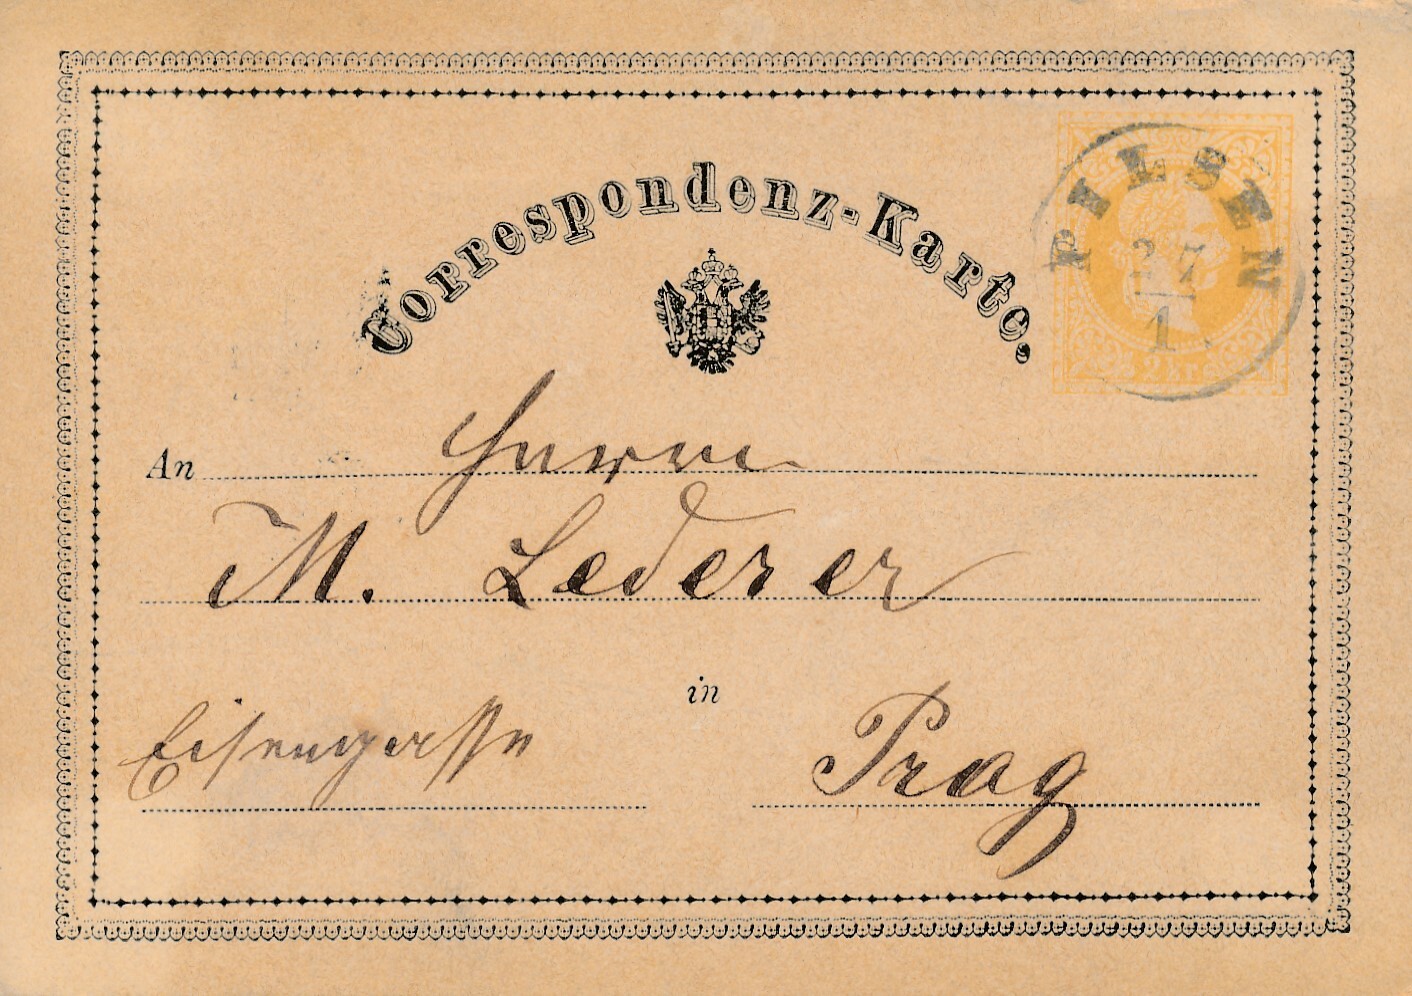 Correspondenz-Karte.
PILSEN
27
1.
2 kr
An Herrn
M. Lederer
in
Eisengasse Prag